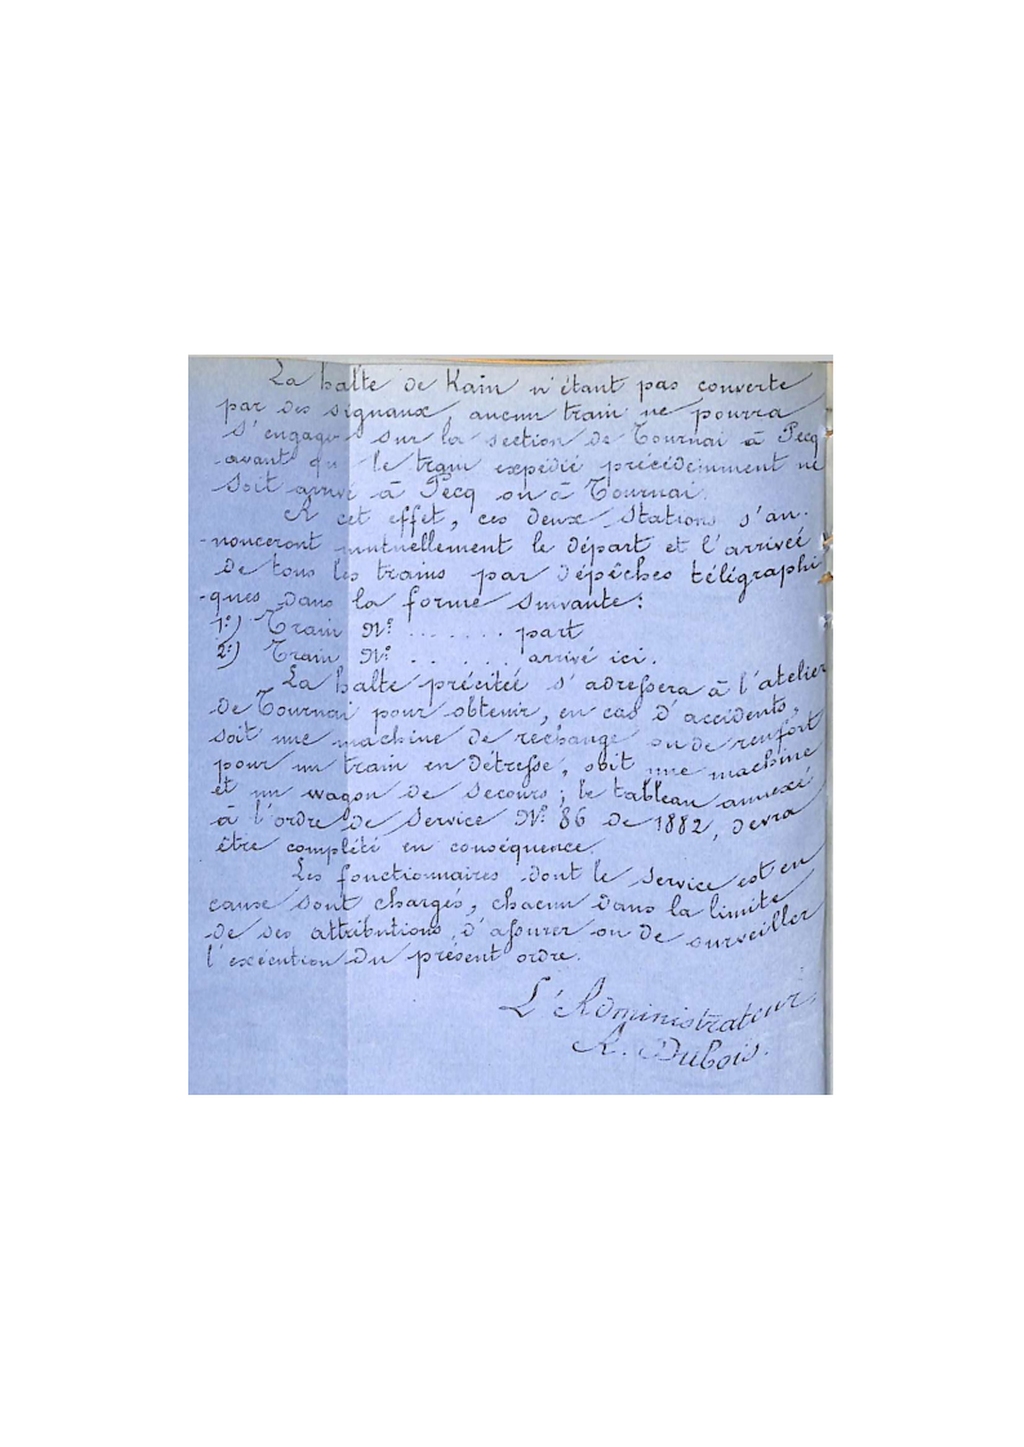 La halte de Kain n'étant pas couverte
par des signaux, aucun train ne pourra
s'engager sur la section de Tournai à Pecq
avant que le train expédié précédemment ne
soit arrivé à Pecq ou à Tournai.
A cet effet, ces deux stations s'an-
-nonceront mutuellement le départ et l'arrivée
de tous les trains par dépêches télégraphi
-ques dans la forme suivante:
1º) Train Nº ....... part
2º) Train Nº . . . . . arrivé ici.
La halte précitée s'adressera à l'atelier
de Tournai pour obtenir, en cas d'accidents,
soit une machine de rechange ou de renfort
pour un train en détresse, soit une machine
et un wagon de secours; le tableau annexé
à l'ordre de service Nº 86 de 1882, devra
être complété en conséquence.
Les fonctionnaires dont le service est en
cause sont chargés, chacun dans la limite
de ses attributions, d'assurer ou de surveiller
l'exécution du présent ordre.
L'Administrateur,
A. Dubois.